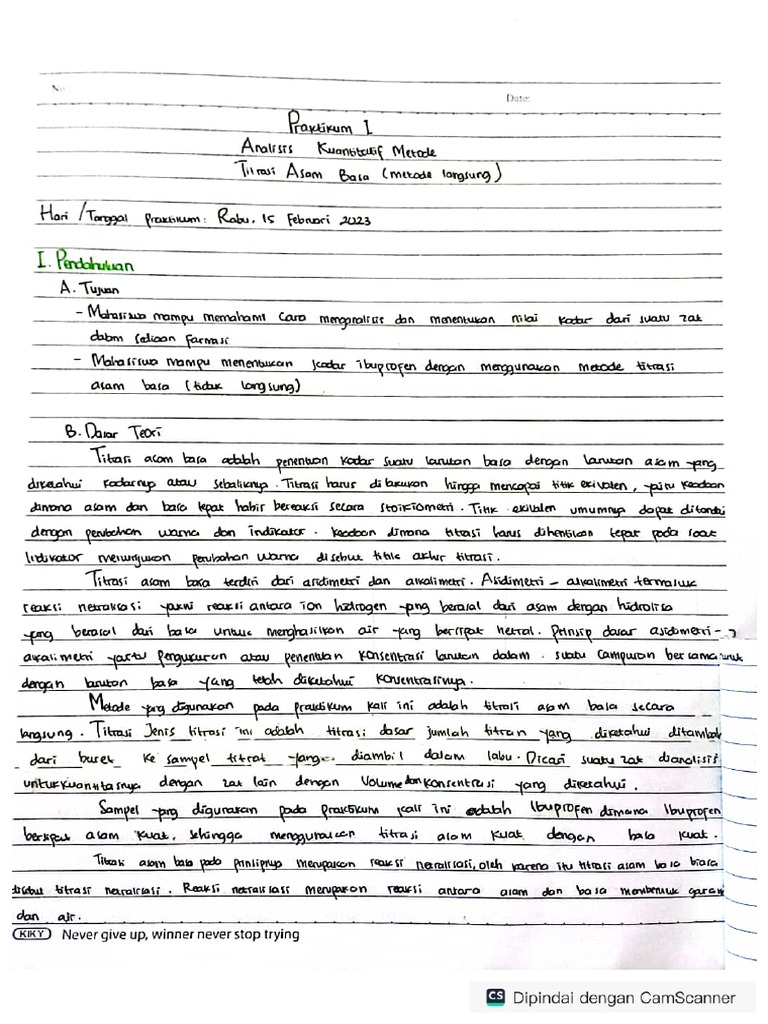 No
Date:
Praktikum I
Analisis Kuantitatif Metode
Titrasi Asam Basa (metode langsung)
Hari/Tanggal Praktikum: Rabu, 15 Februari 2023
I. Pendahuluan
A. Tujuan
- Mahasiswa mampu memahami cara menganalisis dan menentukan nilai kadar dari suatu zat
dalam sediaan farmasi
- Mahasiswa mampu menentukan kadar ibuprofen dengan menggunakan metode titrasi
asam basa (tidak langsung)
B. Dasar Teori
Titrasi asam basa adalah penentuan kadar suatu larutan basa dengan larutan asam yang
diketahui kadarnya atau sebaliknya. Titrasi harus dilakukan hingga mencapai titik ekivalen, yaitu keadaan
dimana asam dan basa tepat habis bereaksi secara stoikiometri. Titik ekivalen umumnya dapat ditandai
dengan perubahan warna dan indikator. Keadaan dimana titrasi harus dihentikan tepat pada saat
Indikator menunjukan perubahan warna disebut titik akhir titrasi.
Titrasi asam basa terdiri dari asidimetri dan alkalimetri. Asidimetri - alkalimetri termasuk
reaksi netralisasi yakni reaksi antara ion hidrogen yang berasal dari asam dengan hidrolisa
yang berasal dari basa untuk menghasilkan air yang bersipat netral. Prinsip dasar asidometri-
alkalimetri yaitu Pengukuran atau penentuan konsentrasi larutan dalam suatu campuran bersama untuk
dengan larutan basa yang telah diketahui konsentrasinya.
Metode yang digunakan pada praktikum kali ini adalah titrasi asam basa secara
langsung. Titrasi Jenis titrasi ini adalah titrasi dasar jumlah titran yang diketahui ditambah
dari buret ke sampel titrat yang diambil dalam labu. Dicari suatu zat dianalisis
untuk kuantitasnya dengan zat lain dengan Volume dan konsentrasi yang diketahui.
Sampel yang digunakan pada praktikum kali ini adalah Ibuprofen dimana Ibuprofen
bersipat asam kuat, sehingga menggunakan titrasi asam kuat dengan basa kuat.
Titrasi asam basa pada prinsipnya merupakan reaksi netralisasi, oleh karena itu titrasi asam basa biasa
disebut titrasi netralisasi. Reaksi netralisasi merupakan reaksi antara asam dan basa membentuk garam
dan air.
KIKY Never give up, winner never stop trying
CS Dipindai dengan CamScanner